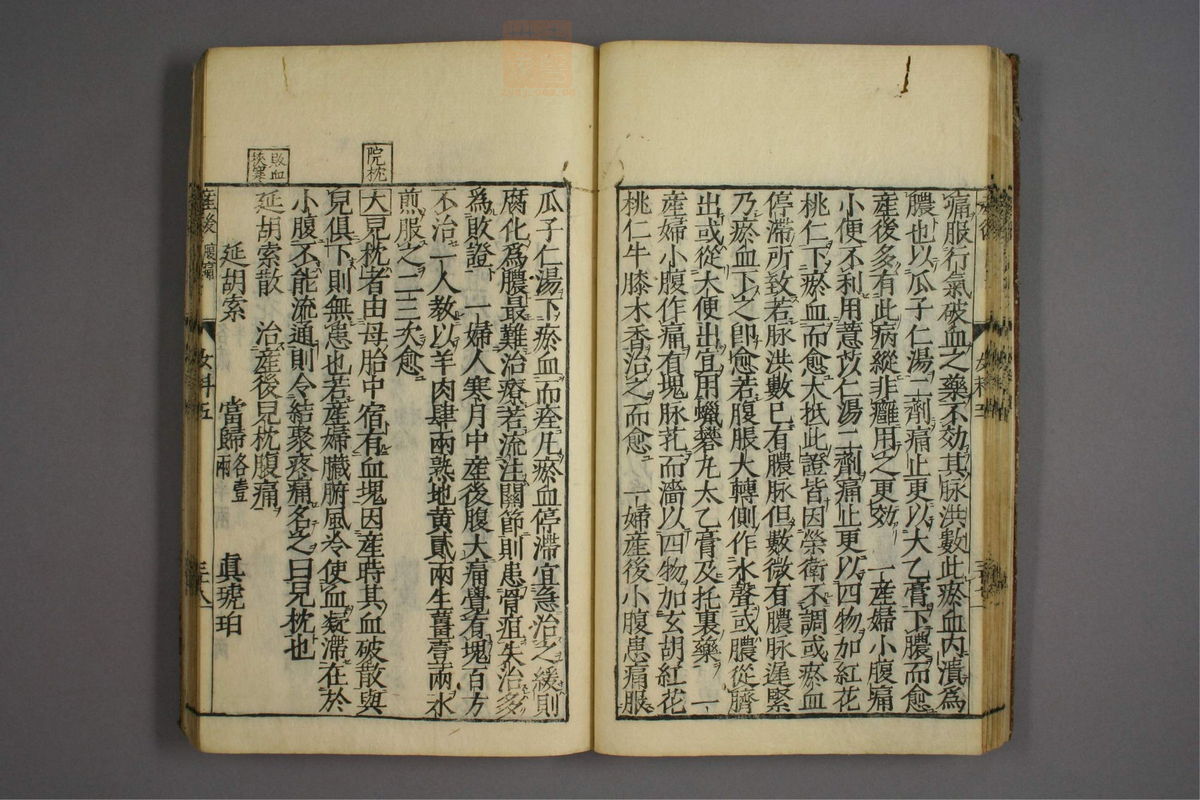 痛服行氣破血之藥不効其脉洪數此瘀血内潰爲
膿也以瓜子仁湯二劑痛止更以太乙膏下膿而愈
産後多有此病縱非癰用之更効　一産婦小腹痛
小便不利用薏苡仁湯二劑痛止更以四物加紅花
桃仁下瘀血而愈大抵此證皆因榮衛不調或瘀血
停滯所致若脉洪數已有膿脉但數微有膿脉遲緊
乃瘀血下之即愈若腹脹大轉側作水聲或膿從臍
出或從大便出宜用蠟礬丸太乙膏及托裏藥　一
産婦小腹作痛有塊脉芤而濇以四物加玄胡紅花
桃仁牛膝木香治之而愈　一婦産後小腹患痛服
瓜子仁湯下瘀血而痊凡瘀血停滯宜急治之緩則
腐化爲膿最難治療若流注關節則患骨疽失治多
爲敗證　一婦人寒月中産後腹大痛覺有塊百方
不治一人教以羊肉肆兩熟地黄貳兩生薑壹兩水
煎服之二三次愈
兒枕
大兒枕者由母胎中宿有血塊因産時其血破散與
兒俱下則無恙也若産婦臟腑風冷使血凝滯在於
小腹不能流通則令結聚疼痛名之曰兒枕也
敗血
挾寒
延胡索散　治産後兒枕腹痛
延胡索　當歸各壹兩　眞琥珀
産後　腹痛　女科五　三十八